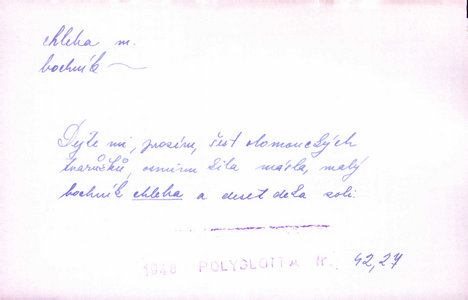 chleba m.
bochník ~
Dejte mi, prosím, šest olomouckých
tvarůžků, osminu kila másla, malý
bochník chleba a deset deka soli.
1948 POLYGLOTTA Nr. 42,27